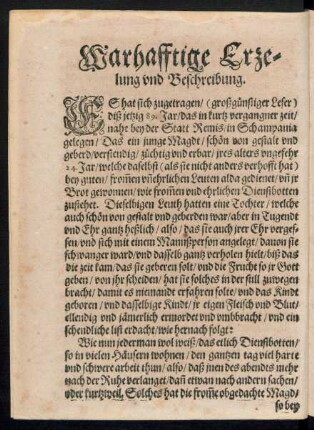 Warhafftige Erze-
lung vnd Beschreibung.
ES hat sich zugetragen/ (großgünstiger Leser)
diß jetzig 89. Jar/ das in kurtz vergangner zeit/
naht bey der Statt Remis/ in Schampania
gelegen/ Das ein junge Magdt/ schön von gestalt vnd
geberd/ verstendig/ züchtig vnd erbar/ jres alters vngefehr
24. Jar/ welche daselbst (als sie nicht anders verhofft hat)
bey guten/ from̃en vñ ehrlichen Leuten alda gedienet/ vñ jr
Brot gewonnen/ wie from̃en vnd ehrlichen Dienstbotten
zustehet. Dieselbigen Leuth hatten eine Tochter/ welche
auch schön von gestalt vnd geberden war/ aber in Tugendt
vnd Ehr gantz heßlich/ also/ das sie auch jrer Ehr verges-
sen/ vnd sich mit einem Mannsperson angelegt/ dauon sie
schwanger ward/ vnd dasselb gantz verholen hielt/ biß das
die zeit kam/ das sie geberen solt/ vnd die Frucht so jr Gott
geben/ von jhr scheiden/ hat sie solches in der still zuwegen
bracht/ damit es niemandt erfahren solte/ vnd das Kindt
geboren/ vnd dasselbige Kindt/ jr eigen Fleisch vnd Blut/
ellendig vnd jämerlich ermordet vnd vmbbracht/ vnd ein
schendliche list erdacht/ wie hernach folgt:
Wie nun jederman wol weiß/ das etlich Dienstbotten/
so in vielen Häusern wohnen/ den gantzen tag viel harte
vnd schwere arbeit thun/ also/ daß jnen des abendts mehr
nach der Ruhe verlanget/ dañ etwan nach andern sachen/
oder kurtzweil. Solches hat die from̃e obgedachte Magd/
so bey